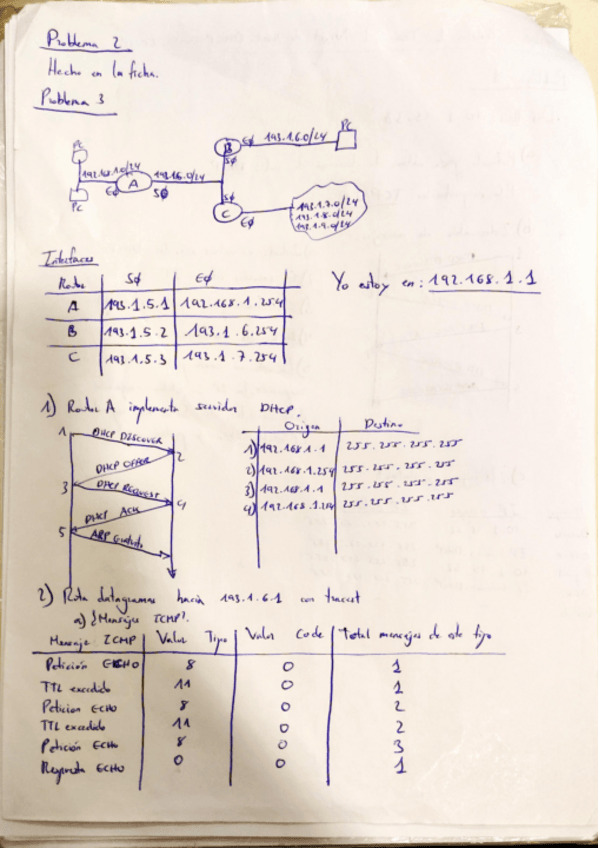 Problema 2
Hecho en la ficha.
Problema 3
PC
PC
192.168.1.0/24
EØ
A
SØ
B
SØ
EØ
193.1.6.0/24
PC
SØ
C
EØ
193.1.7.0/24
193.1.8.0/24
193.1.9.0/24
Interfaces
Router SØ EØ
A 193.1.5.1 192.168.1.254
B 193.1.5.2 193.1.6.254
C 193.1.5.3 193.1.7.254
Yo estoy en: 192.168.1.1
1) Router A implementa servidor DHCP.
Origen Destino
1 DHCP DISCOVER
DHCP OFFER 2
3 DHCP REQUEST
DHCP ACK 4
5 ARP Gratuito
1) 192.168.1.1 255.255.255.255
2) 192.168.1.254 255.255.255.255
3) 192.168.1.1 255.255.255.255
4) 192.168.1.254 255.255.255.255
2) Ruta datagramas hacia 193.1.6.1 con tracert
a) ¿Mensajes ICMP?
Mensaje ICMP Valor Tipo Valor Code Total mensajes de este tipo
Petición ECHO 8 0 1
TTL excedido 11 0 1
Petición ECHO 8 0 2
TTL excedido 11 0 2
Petición ECHO 8 0 3
Respuesta ECHO 0 0 1